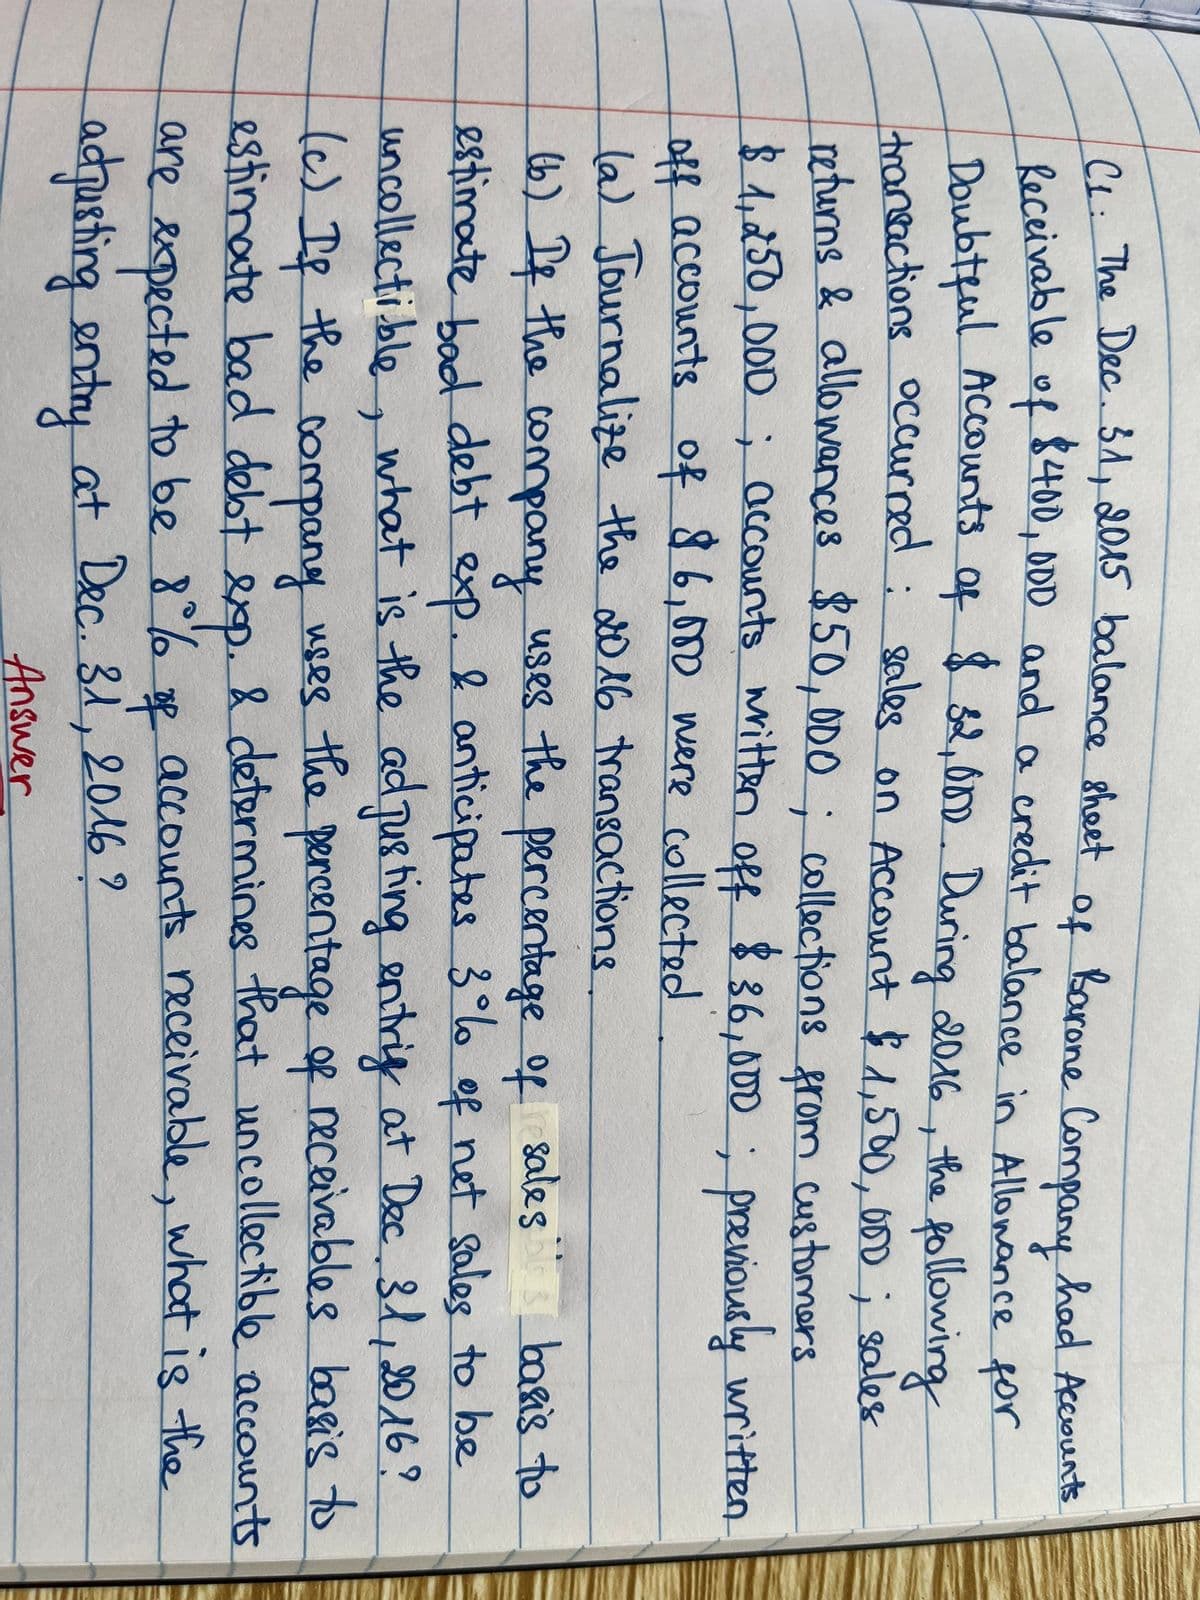 C1: The Dec. 31, 2015 balance sheet of Barone Company had Accounts
Receivable of $400,000 and a credit balance in Allowance for
Doubtful Accounts of $ 32,000. During 2016, the following
transactions occurred: sales on Account $ 1,500,000; sales
returns & allowances $50,000; collections from customers
$ 1,250,000; accounts written off $ 36,000; previously written
off accounts of $ 6,000 were collected.
(a) Journalize the 2016 transactions.
(b) If the company uses the percentage of sales basis to
estimate bad debt exp. & anticipates 3% of net sales to be
uncollectible, what is the adjusting entriy at Dec. 31, 2016?
(c) If the company uses the percentage of receivables basis to
estimate bad debt exp. & determines that uncollectible accounts
are expected to be 8% of accounts receivable, what is the
adjusting entry at Dec. 31, 2016?
Answer